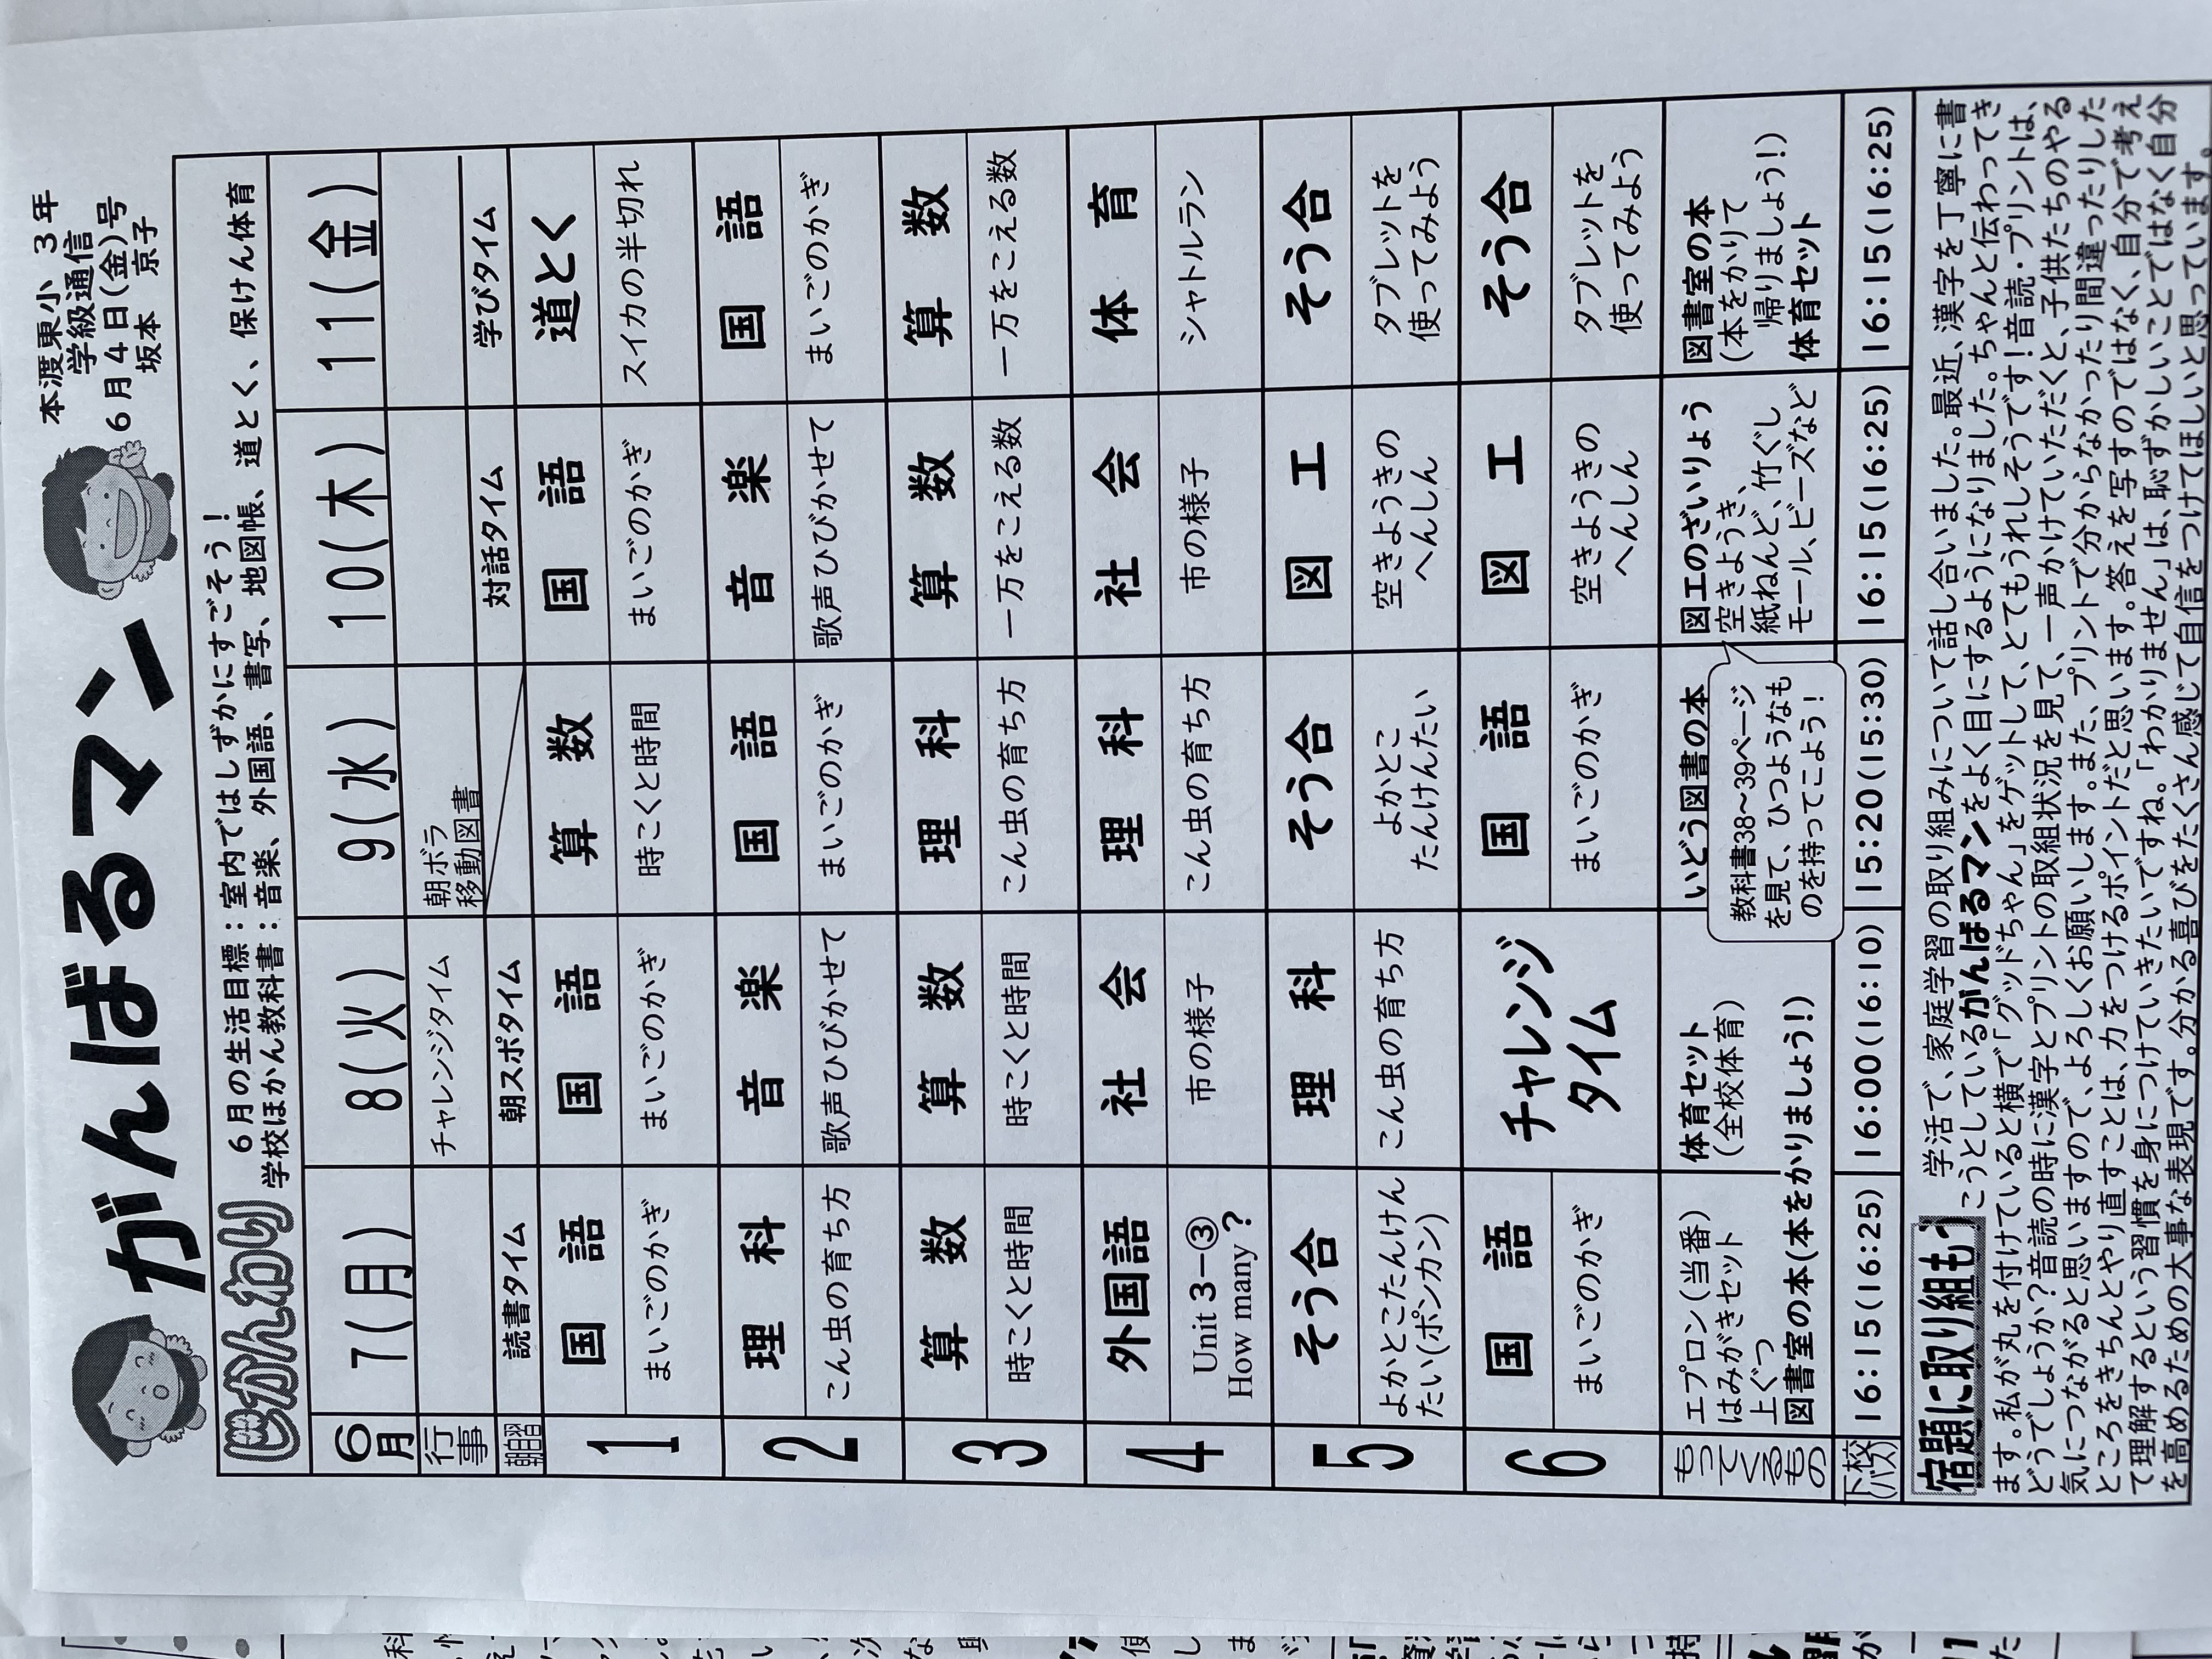 がんばるマン
本渡東小 3年
学級通信
6月4日(金)号
坂本 京子
じかんわり
6月の生活目標:室内ではしずかにすごそう!
学校ほかん教科書:音楽、外国語、書写、地図帳、道とく、保けん体育
6月 7(月) 8(火) 9(水) 10(木) 11(金)
行事 チャレンジタイム 朝ボラ
移動図書
朝自習 読書タイム 朝スポタイム 対話タイム 学びタイム
1 国語 国語 算数 国語 道とく
まいごのかぎ まいごのかぎ 時こくと時間 まいごのかぎ スイカの半切れ
2 理科 音楽 国語 音楽 国語
こん虫の育ち方 歌声ひびかせて まいごのかぎ 歌声ひびかせて まいごのかぎ
3 算数 算数 理科 算数 算数
時こくと時間 時こくと時間 こん虫の育ち方 一万をこえる数 一万をこえる数
4 外国語 社会 理科 社会 体育
Unit 3-③ 市の様子 こん虫の育ち方 市の様子 シャトルラン
How many?
5 そう合 理科 そう合 図工 そう合
よかとこたんけん こん虫の育ち方 よかとこ 空きようきの タブレットを
たい(ポンカン) たんけんたい へんしん 使ってみよう
6 国語 チャレンジ 国語 図工 そう合
タイム
まいごのかぎ まいごのかぎ 空きようきの タブレットを
へんしん 使ってみよう
もってくるもの エプロン(当番) 体育セット いどう図書の本 図工のざいりょう 図書室の本
はみがきセット (全校体育) 空きようき、 (本をかりて
上ぐつ 紙ねんど、竹ぐし 帰りましょう!)
図書室の本(本をかりましょう!) モール、ビーズなど 体育セット
教科書38~39ページ
を見て、ひつようなも
のを持ってこよう!
下校(バス) 16:15(16:25) 16:00(16:10) 15:20(15:30) 16:15(16:25) 16:15(16:25)
宿題に取り組もう
学活で、家庭学習の取り組みについて話し合いました。最近、漢字を丁寧に書
こうとしているがんばるマンをよく目にするようになりました。ちゃんと伝わってき
ます。私が丸を付けていると横で「グッドちゃん」をゲットして、とてもうれしそうです!音読・プリントは、
どうでしょうか?音読の時に漢字とプリントの取組状況を見て、一声かけていただくと、子供たちのやる
気につながると思いますので、よろしくお願いします。また、プリントで分からなかったり間違ったりした
ところをきちんとやり直すことは、力をつけるポイントだと思います。答えを写すのではなく、自分で考え
て理解するという習慣を身につけていきたいですね。「わかりません」は、恥ずかしいことではなく自分
を高めるための大事な表現です。分かる喜びをたくさん感じて自信をつけてほしいと思っています。